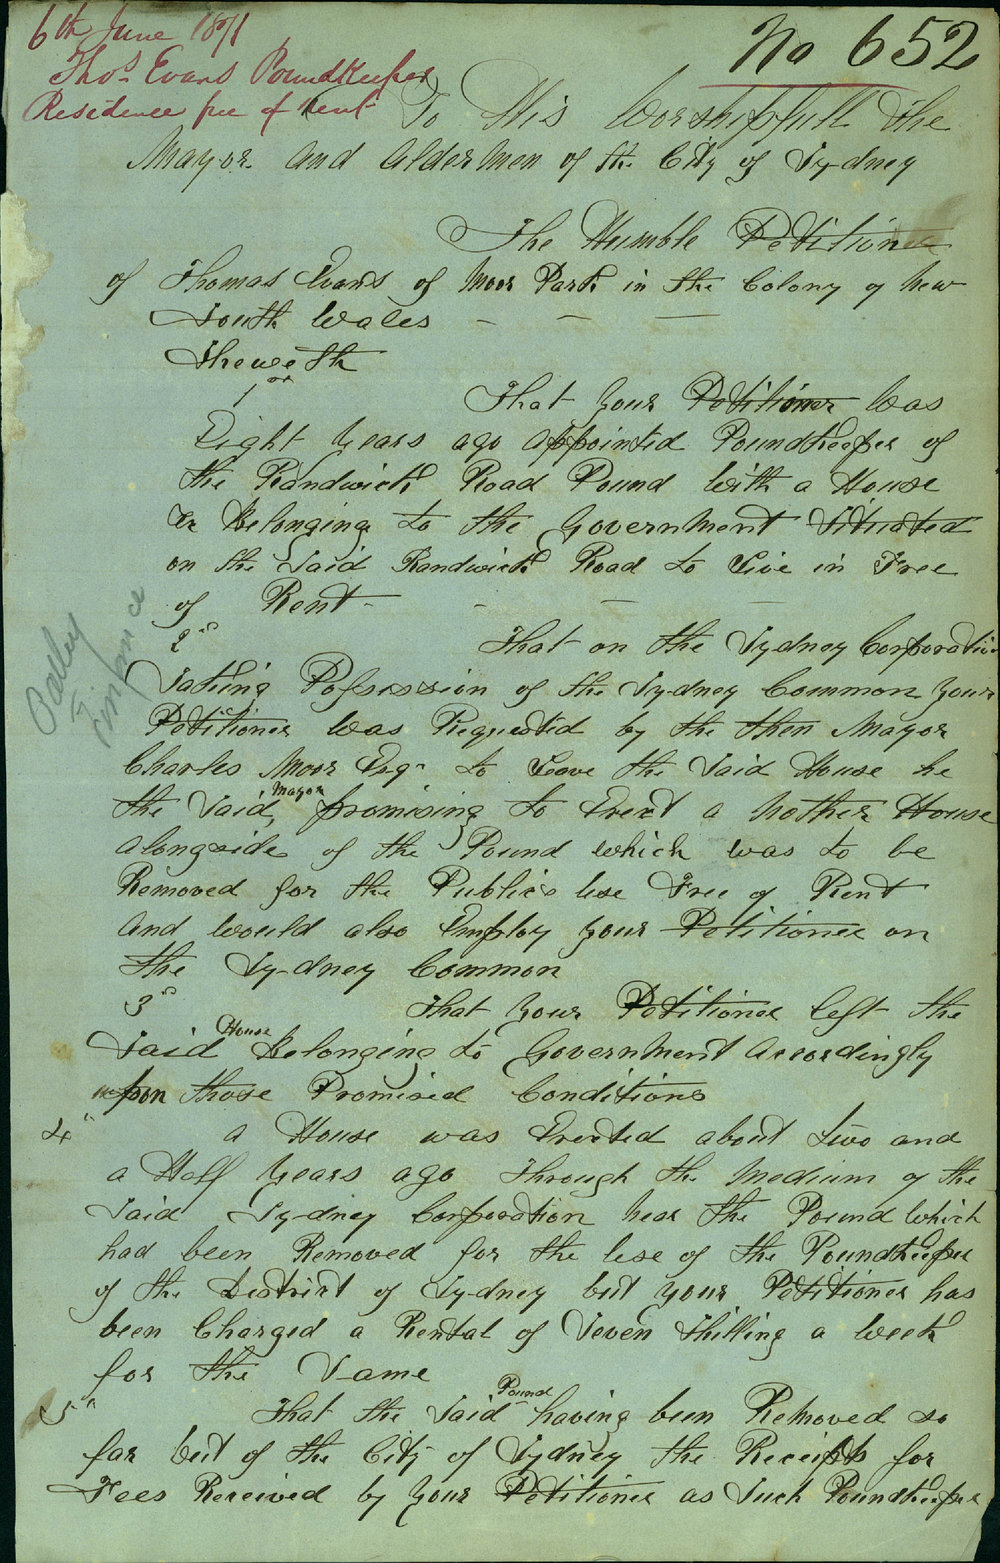 6th June 1871
No 652
Thos Evans Poundkeeper
Residence free of rent
To His Worshipfull the
Mayor and Aldermen of the City of Sydney
The Humble Petitione
of Thomas Evans of Moor Park in the Colony of New
South Wales
Sheweth
1st
That your Petitioner was
Eight years ago appointed Poundkeeper of
the Randwick Road Pound with a House
Belonging to the Government Situated
on the Said Randwick Road to Live in Free
of Rent
2nd
That on the Sydney Corporation
Taking Possession of the Sydney Common your
Petitioner was Requested by the then Mayor
Charles Moor Esqr to Leave the Said House he
the Said Mayor promising to Erect a Nother House
alongside of the Pound which was to be
Removed for the Publics use Free of Rent
And would also Employ your Petitioner on
the Sydney Common
3rd
That your Petitioner left the
Said House Belonging to Government Accordingly
upon those Promised Conditions
4th
a House was Erected about two and
a Half Years ago through the Medium of the
Said Sydney Corporation near the Pound which
had been Removed for the use of the Poundkeeper
of the District of Sydney but your Petitioner has
been Charged a Rental of Seven Shilling a Week
for the Same
5th
That the Said Pound having been Removed so
far out of the City of Sydney the Receipts for
Fees Received by your Petitioner as Such Poundkeeper
Finance